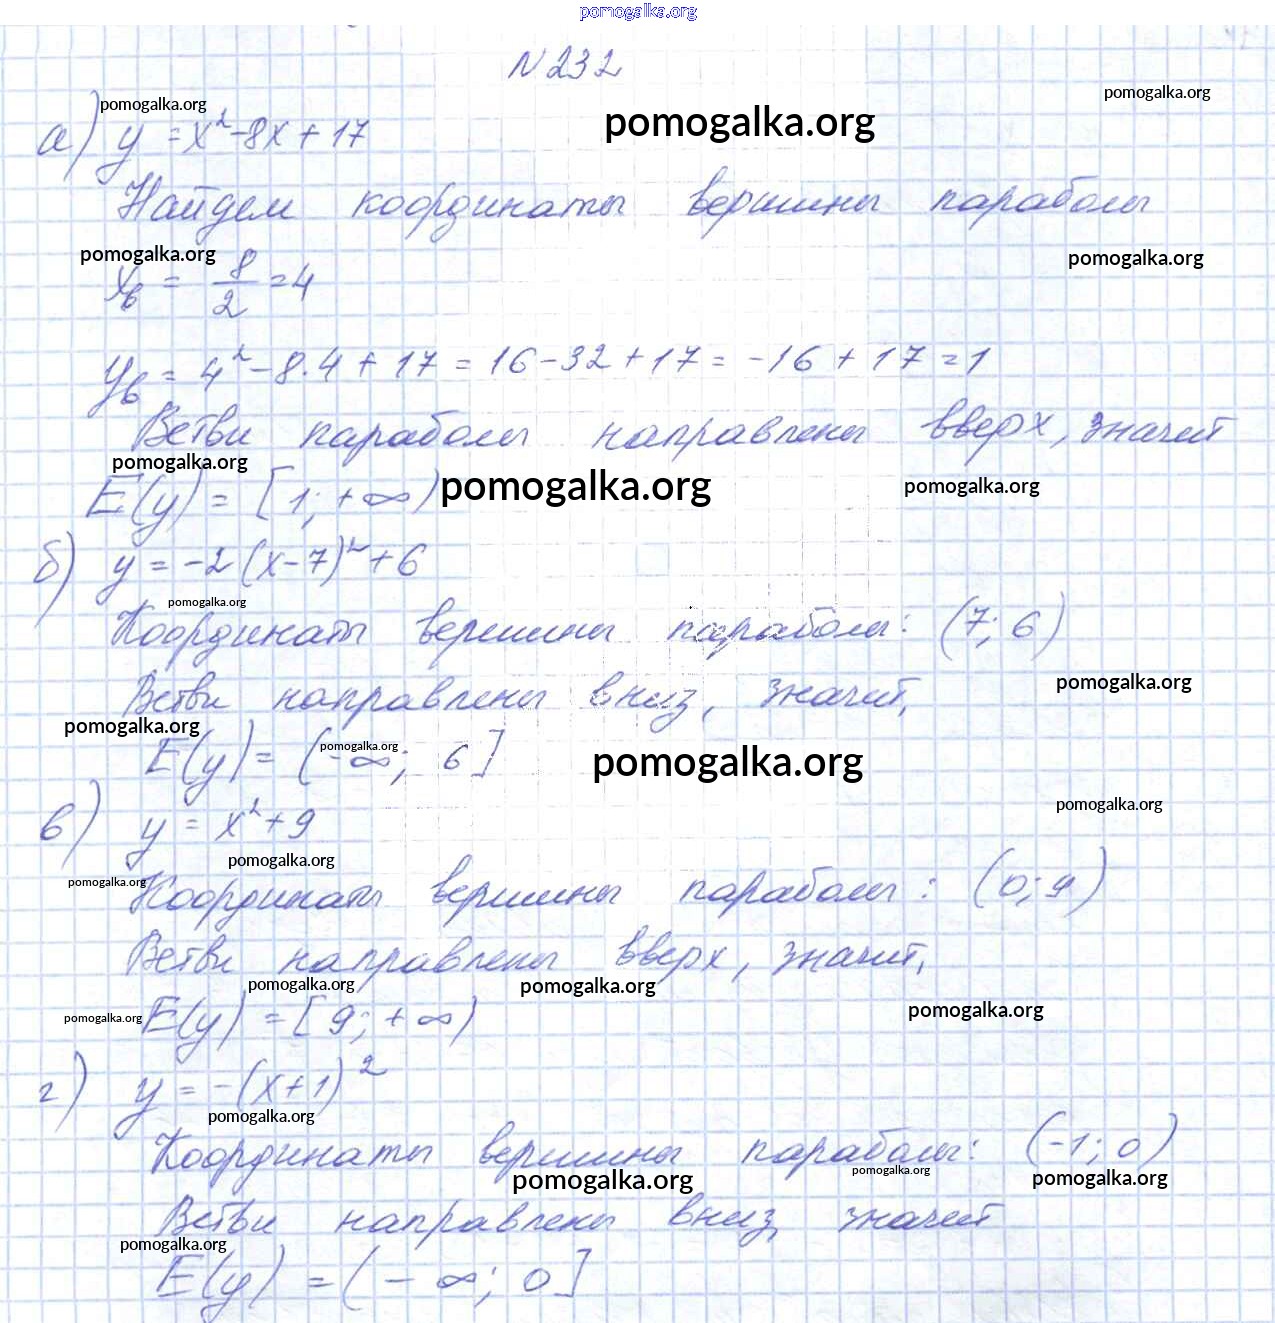 pomogalka.org
N 232
pomogalka.org
pomogalka.org
а) y = x²-8x+17
pomogalka.org
Найдем координаты вершины параболы
pomogalka.org
pomogalka.org
xв = 8/2 = 4
yв = 4² - 8·4 + 17 = 16-32+17 = -16+17 = 1
Ветви параболы направлены вверх, значит
pomogalka.org
E(y) = [1; +∞)
pomogalka.org
pomogalka.org
б) y = -2(x-7)²+6
pomogalka.org
Координаты вершины параболы: (7; 6)
Ветви направлены вниз, значит,
pomogalka.org
pomogalka.org
E(y) = (-∞; 6]
pomogalka.org
pomogalka.org
в) y = x²+9
pomogalka.org
pomogalka.org
pomogalka.org
Координаты вершины параболы: (0;9)
Ветви направлены вверх, значит,
pomogalka.org
pomogalka.org
pomogalka.org
pomogalka.org
E(y) = [9; +∞)
г) y = -(x+1)²
pomogalka.org
Координаты вершины параболы: (-1; 0)
pomogalka.org
pomogalka.org
pomogalka.org
Ветви направлены вниз, значит
pomogalka.org
E(y) = (-∞; 0]